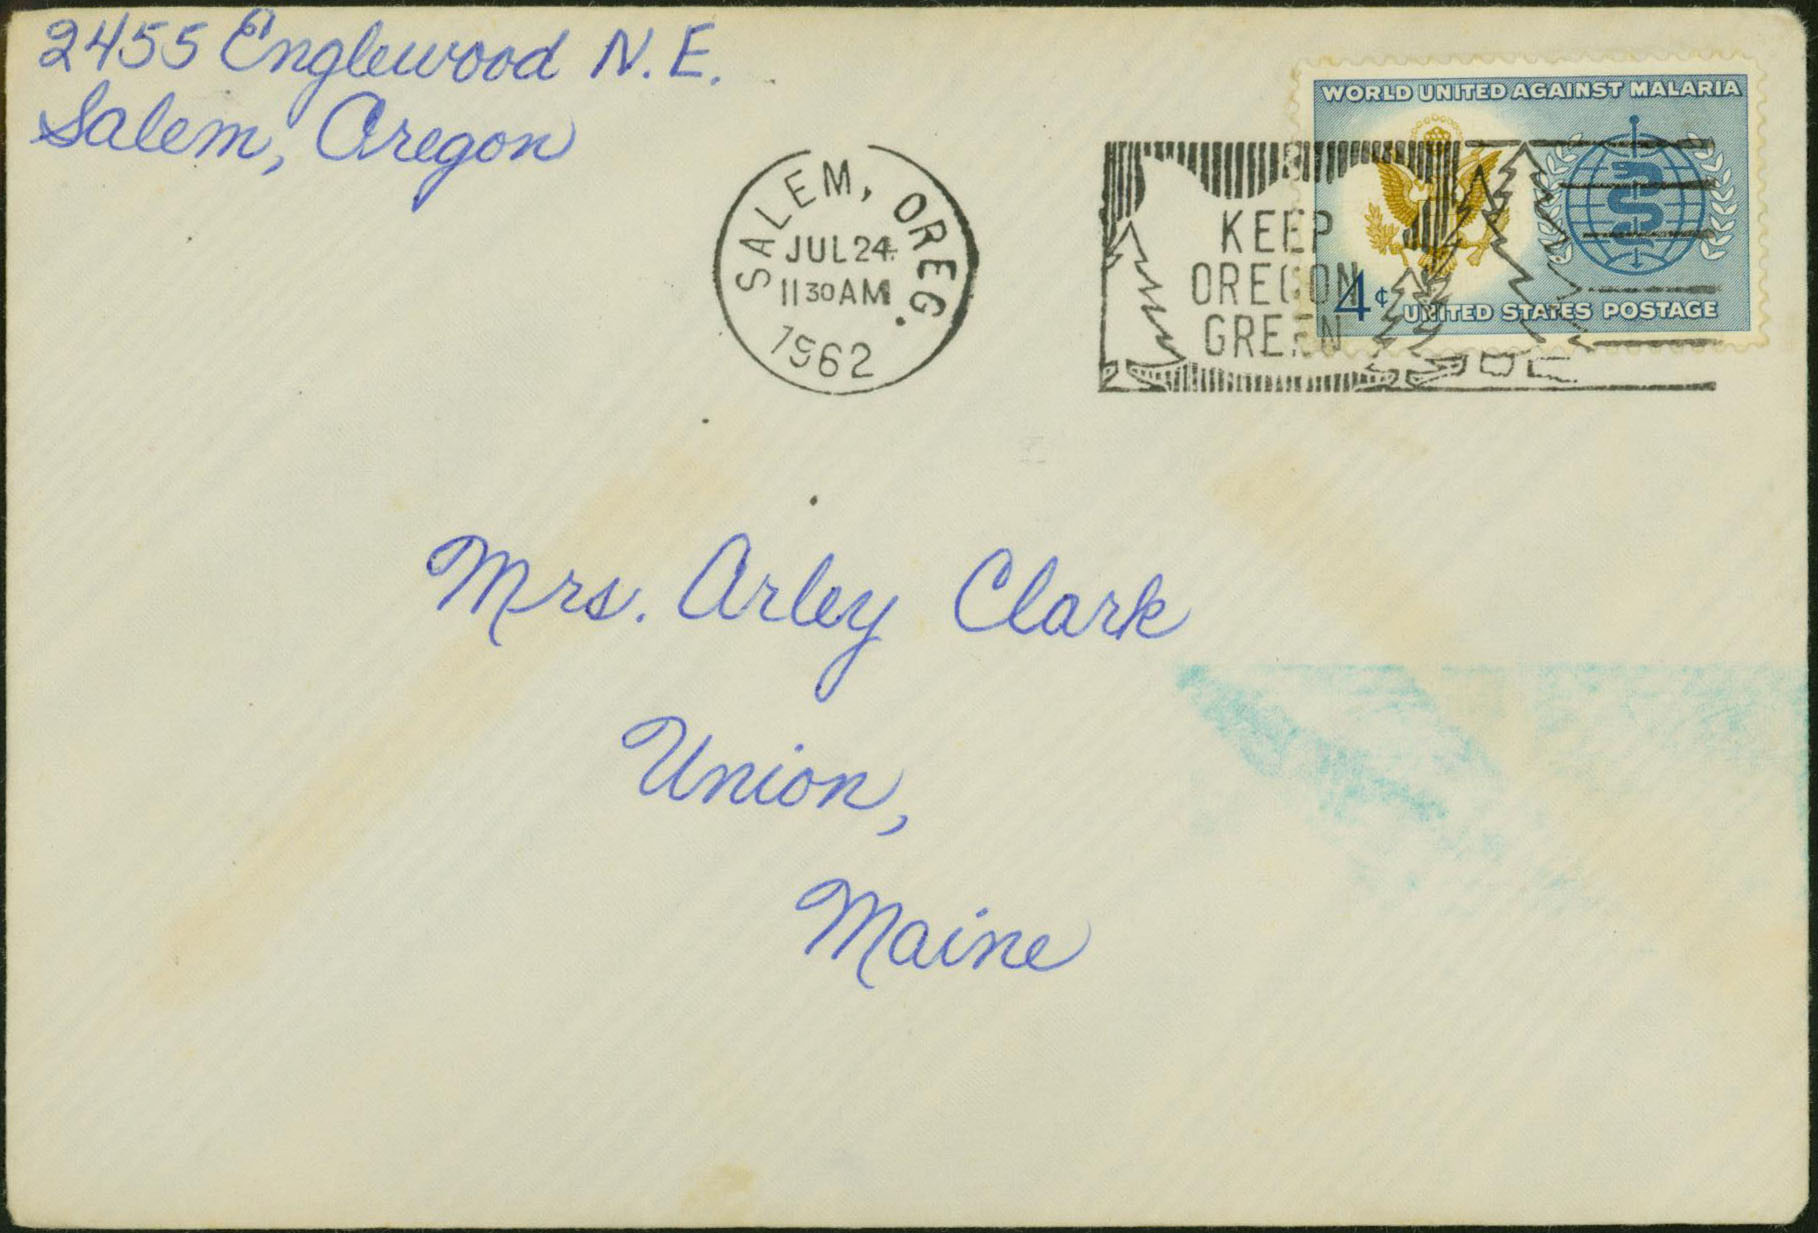 2455 Englewood N.E.
Salem, Oregon
SALEM, OREG.
JUL 24
11 30 AM
1962
KEEP
OREGON
GREEN
WORLD UNITED AGAINST MALARIA
4¢ UNITED STATES POSTAGE
Mrs. Arley Clark
Union,
Maine